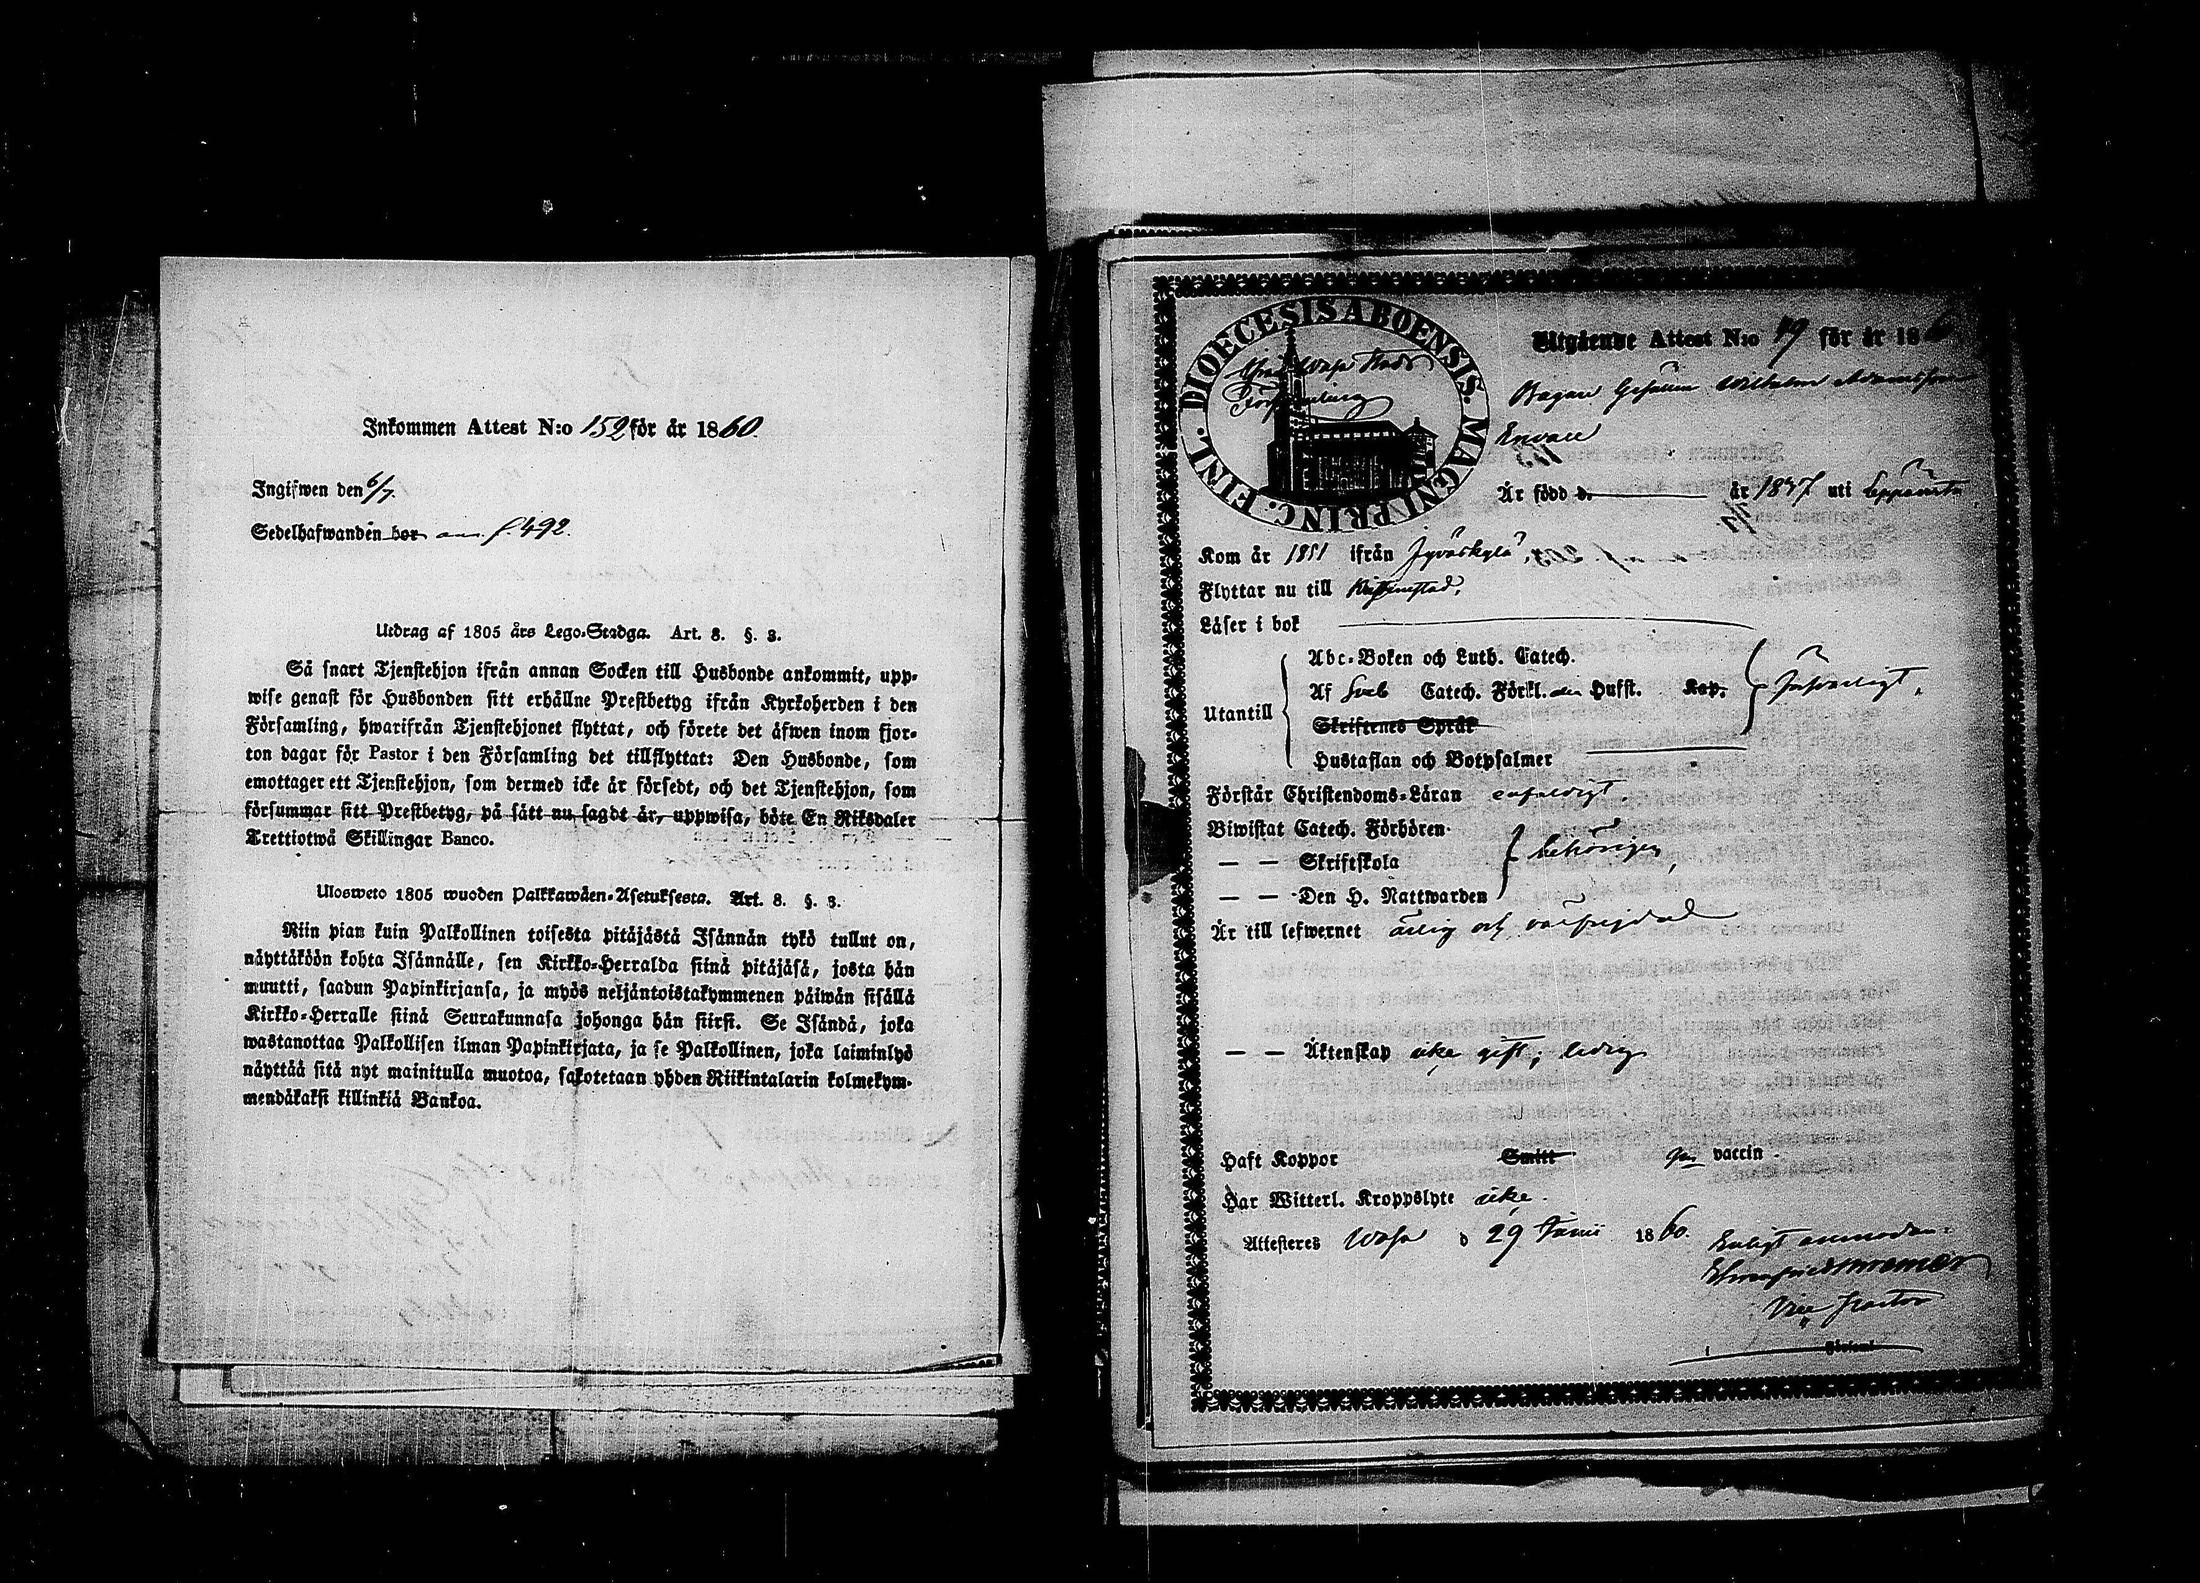 Inkommen Attest N:o 152 för år 1860.
Ingifwen den 6/7.
Sedelhafwanden bor ant. f. 492.
Utdrag af 1805 års Lego-Stadga. Art. 8. §. 3.
Så snart Tjenstehjon ifrån annan Socken till Husbonde ankommit, upp-
wise genast för Husbonden sitt erhållne Prestbetyg ifrån Kyrkoherden i den
Församling, hwarifrån Tjenstehjonet flyttat, och förete det äfwen inom fjor-
ton dagar för Pastor i den Församling det tillflyttat: Den Husbonde, som
emottager ett Tjenstehjon, som dermed icke är försedt, och det Tjenstehjon, som
försummar sitt Prestbetyg, på sätt nu sagdt är, uppwisa, böte En Riksdaler
Trettiotwå Skillingar Banco.
Ulosweto 1805 wuoden Palkkawäen-Asetuksesta. Art. 8. §. 3.
Niin pian kuin Palkollinen toisesta pitäjästä Isännän tykö tullut on,
näyttäköön kohta Isännälle, sen Kirkko-Herralda siinä pitäjäsä, josta hän
muutti, saadun Papinkirjansa, ja myös neljäntoistakymmenen päiwän sisällä
Kirkko-Herralle siinä Seurakunnasa johonga hän siirsi. Se Isändä, joka
wastanottaa Palkollisen ilman Papinkirjata, ja se Palkollinen, joka laiminlyö
näyttää sitä nyt mainitulla muotoa, sakotetaan yhden Riikintalarin kolmekym-
mendäkaksi killinkiä Bankoa.
DIOECESIS ABOENSIS. MAGNI PRINC. FINL.
Ifrån Wasa Stads
Församling
Utgående Attest N:o 79 för år 1860
Bagare Gesällen Wilhelm Adamsson
Envall
Är född d. år 1837 uti Leppävirta
Kom år 1851 ifrån Jyväskylä,
Flyttar nu till Kristinestad.
Läser i bok
Utantill
Abc-Boken och Luth. Catech.
Af Sveb Catech. Förkl. Husst. Kap.
Skriftenes Språk
Hustaflan och Botpsalmer
försvarligt.
Förstår Christendoms-Läran enfaldigt
Biwistat Catech. Förhören
— — Skriftskola
— — Den H. Nattwarden
behörigen,
Är till lefwernet ärlig och välfrejdad
— — Äktenskap icke gift, ledig
Haft Koppor Smitt gm vaccin.
Har Witterl. Kroppslyte icke.
Attesteres Wasa d 29 Junii 1860.
Enligt anmodan:
Vice Pastor